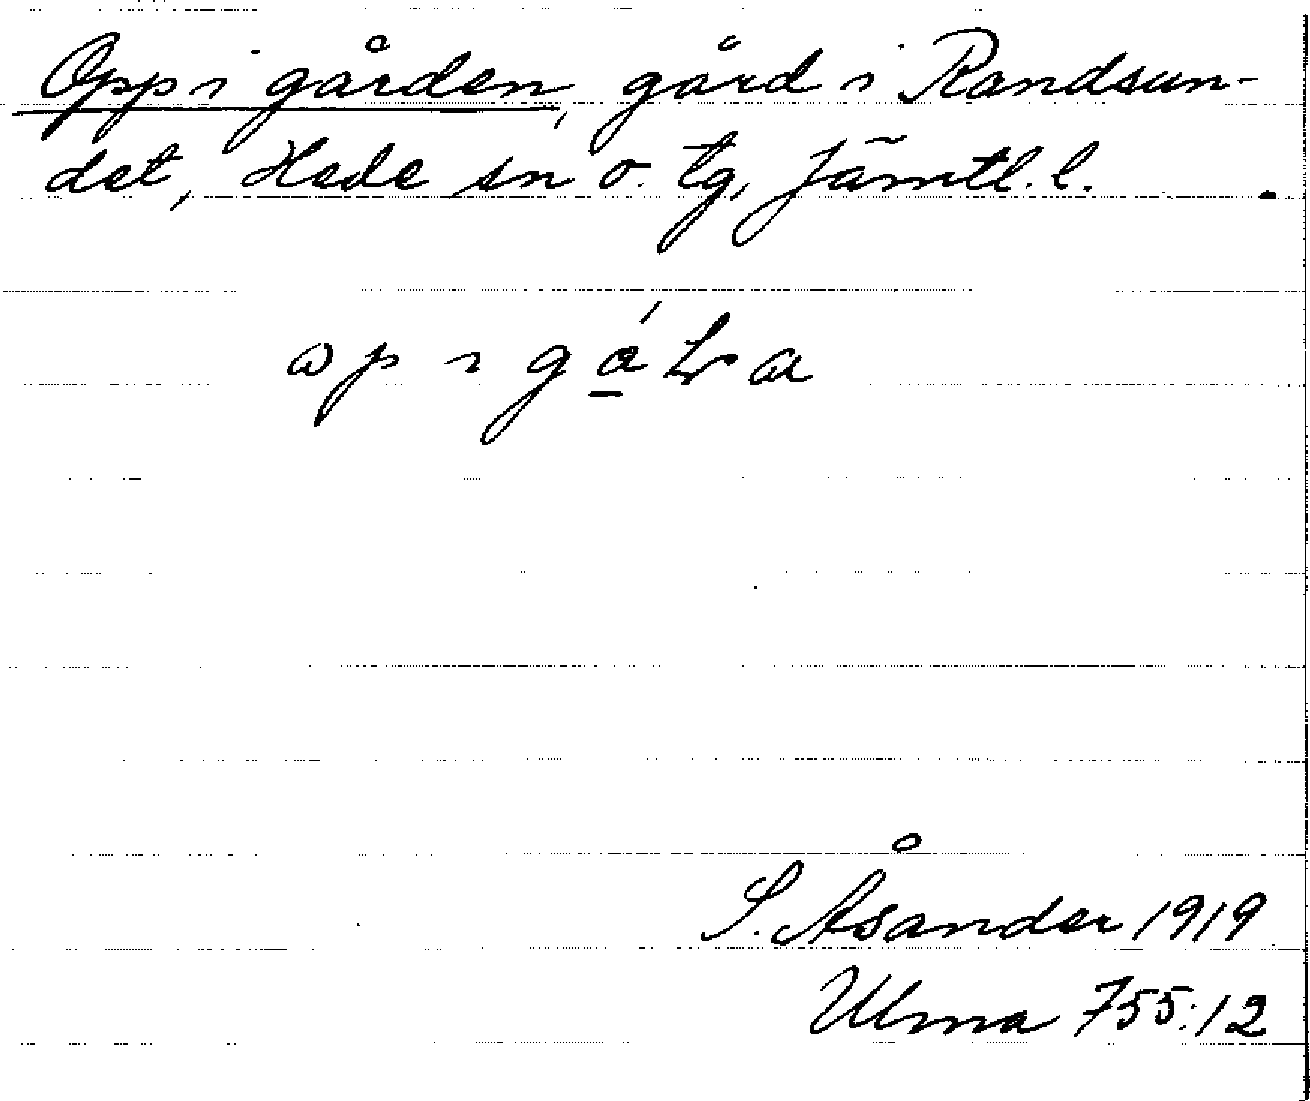 Opp i gården, gård i Randsun-
det, Hede sn o. tg, Jämtl. l.
S. Åsander 1919
Ulma 755:12